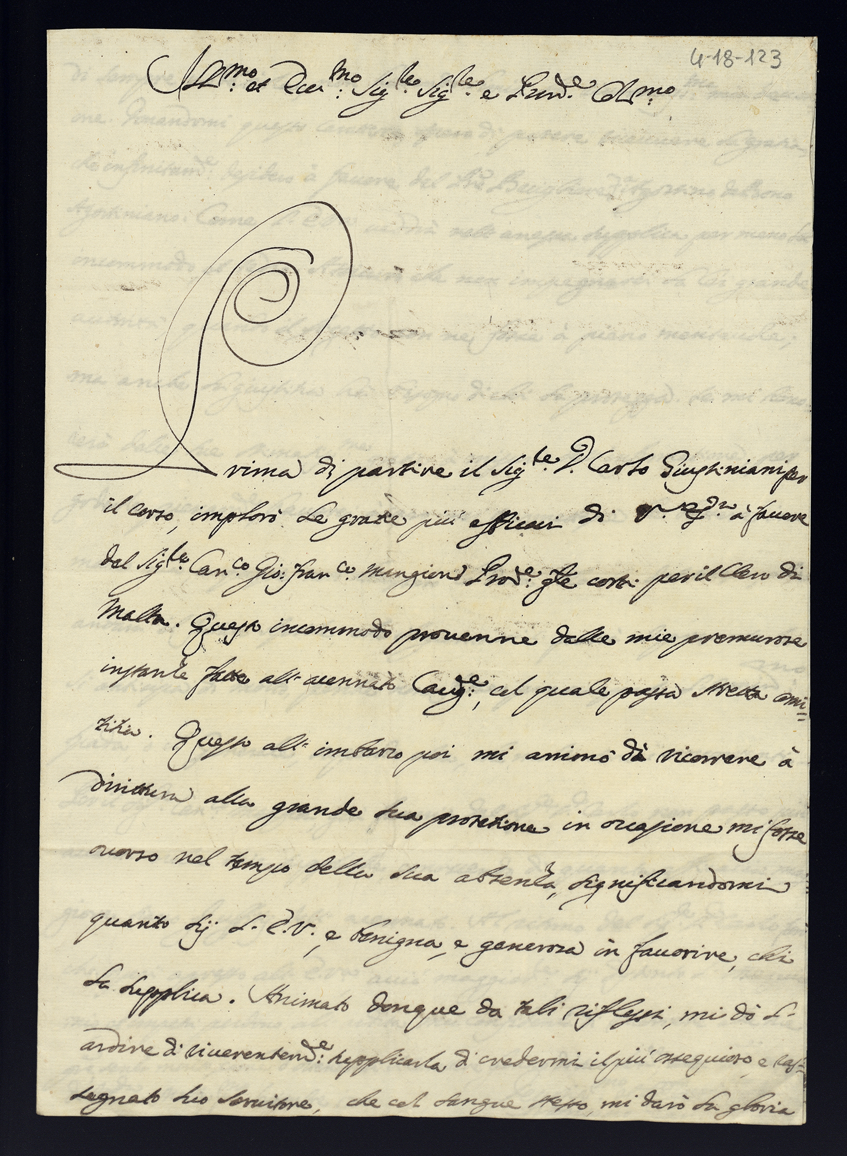 4-18-123
Ill.mo et Rev.mo Sig.re Sig.re e Pron.e Col.mo
Prima di partire il Sig.re D. Carlo Giustiniani per
il corso, implorò le grazie più efficaci di à favore
del Sig.re Can.co Gio: Fran.co Mangion Prod.e g.le costì per il Clero di
Malta. Questo incommodo provenne dalle mie premurose
instanze fatte all' accennato Cav.re, col quale passa stretta ami=
tizia. Questo all' imbarco poi mi animò dà ricorrere à
dirittura alla grande sua protezione in occasione mi fosse
occorso nel tempo della sua absenza, significandomi
quanto sij S. E. V., e benigna, e generosa in favorire, chi
la supplica. Animato donque da tali riflessi, mi dò l'
ardire di riverentem.e supplicarla di credermi il più ossequioso, e ras=
segnato suo servitore, che col sangue stesso, mi darò la gloria